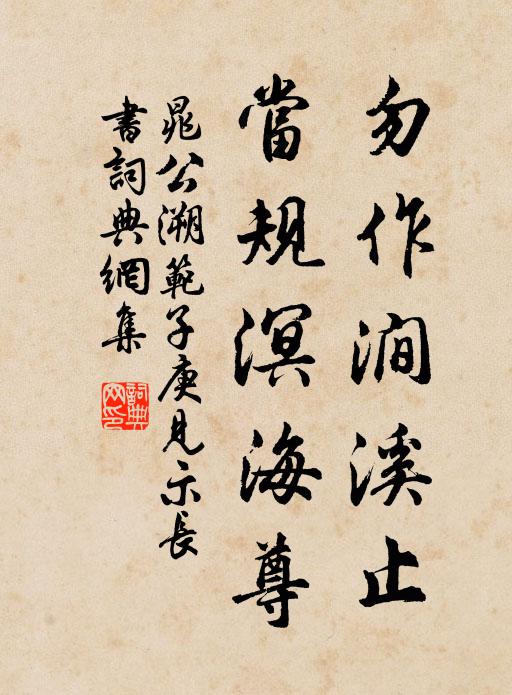 勿作澗溪止
當規溟海尊
晁公溯範子庚見示長
書詞典網集
詞典網印